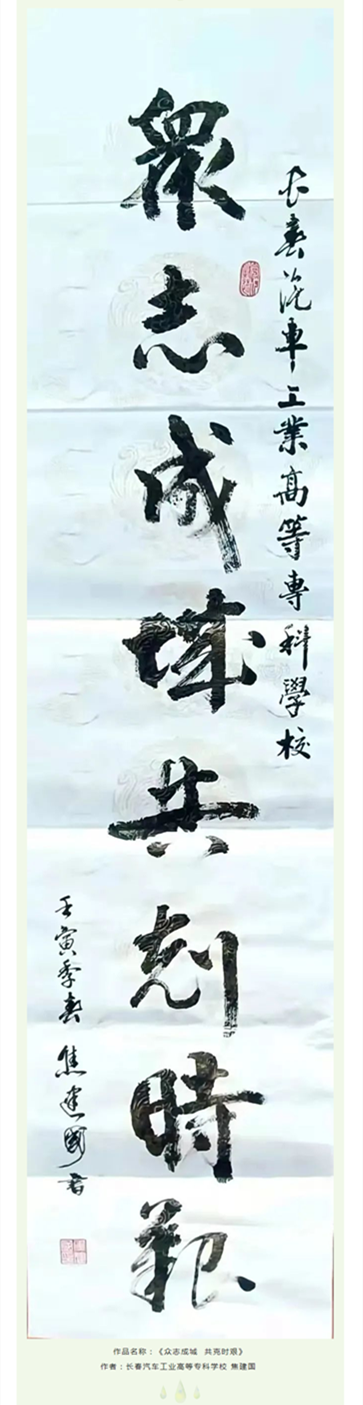 长春汽車工業高等專科學校
衆志成城共剋時艱
壬寅季春 焦建國書
作品名称：《众志成城 共克时艰》
作者：长春汽车工业高等专科学校 焦建国